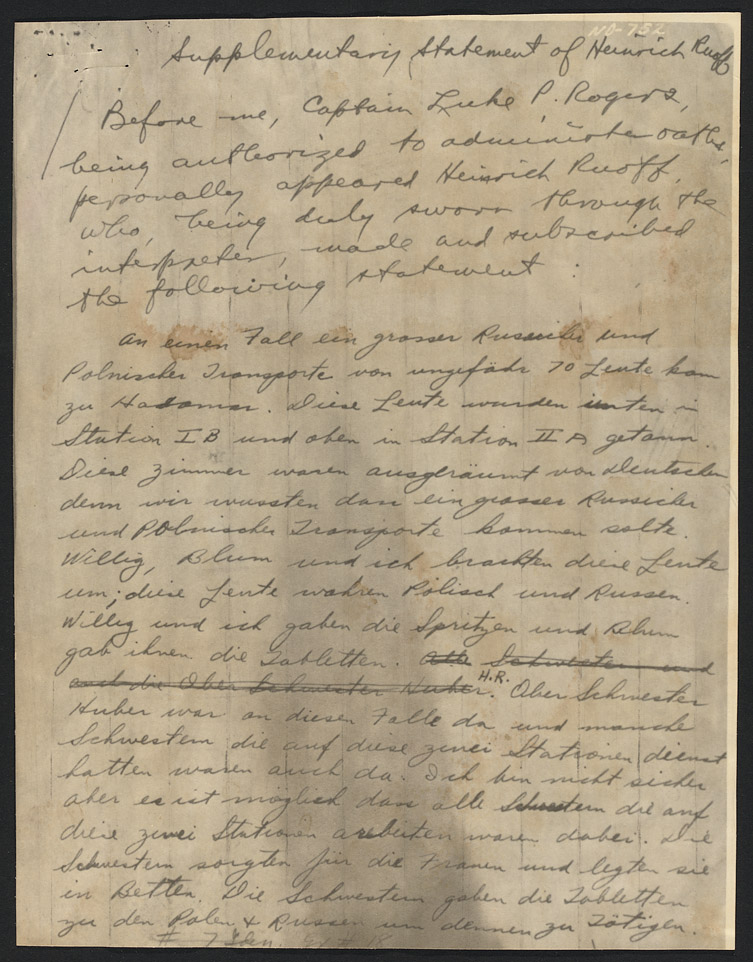 NO-752
Supplementary Statement of Heinrich Ruoff
Before me, Captain Luke P. Rogers,
being authorized to administer oaths,
personally appeared Heinrich Ruoff,
who, being duly sworn through the
interpreter, made and subscribed
the following statement :
An einen Fall ein grosser Russicher und
Polnischer Transporte von ungefähr 70 Leute kam
zu Hadamar. Diese Leute wurden unten in
Station I B und oben in Station II A getann.
Diese zimmer waren ausgeräumt von Deutschen
denn wir wussten dass ein grosser Russicher
und Polnischer Transporte kommen solte.
Willig, Blum und ich brachten diese Leute
um; diese Leute wahren Polisch und Russen.
Willig und ich gaben die Spritzen und Blum
gab ihnen die Tabletten. Alle Schwestern und
auch die Ober Schwester Huber. H.R. Ober Schwester
Huber war an diesen Falle da und manche
Schwestern die auf diese zwei Stationen dienst
hatten waren auch da. Ich bin nicht sicher
aber es ist möglich dass alle Schwestern die auf
diese zwei Stationen arbeiten waren dabei. Die
Schwestern sorgten für die Frauen und legten sie
in Betten. Die Schwestern gaben die Tabletten
zu den Polen & Russen um dennen zu Tötigen.